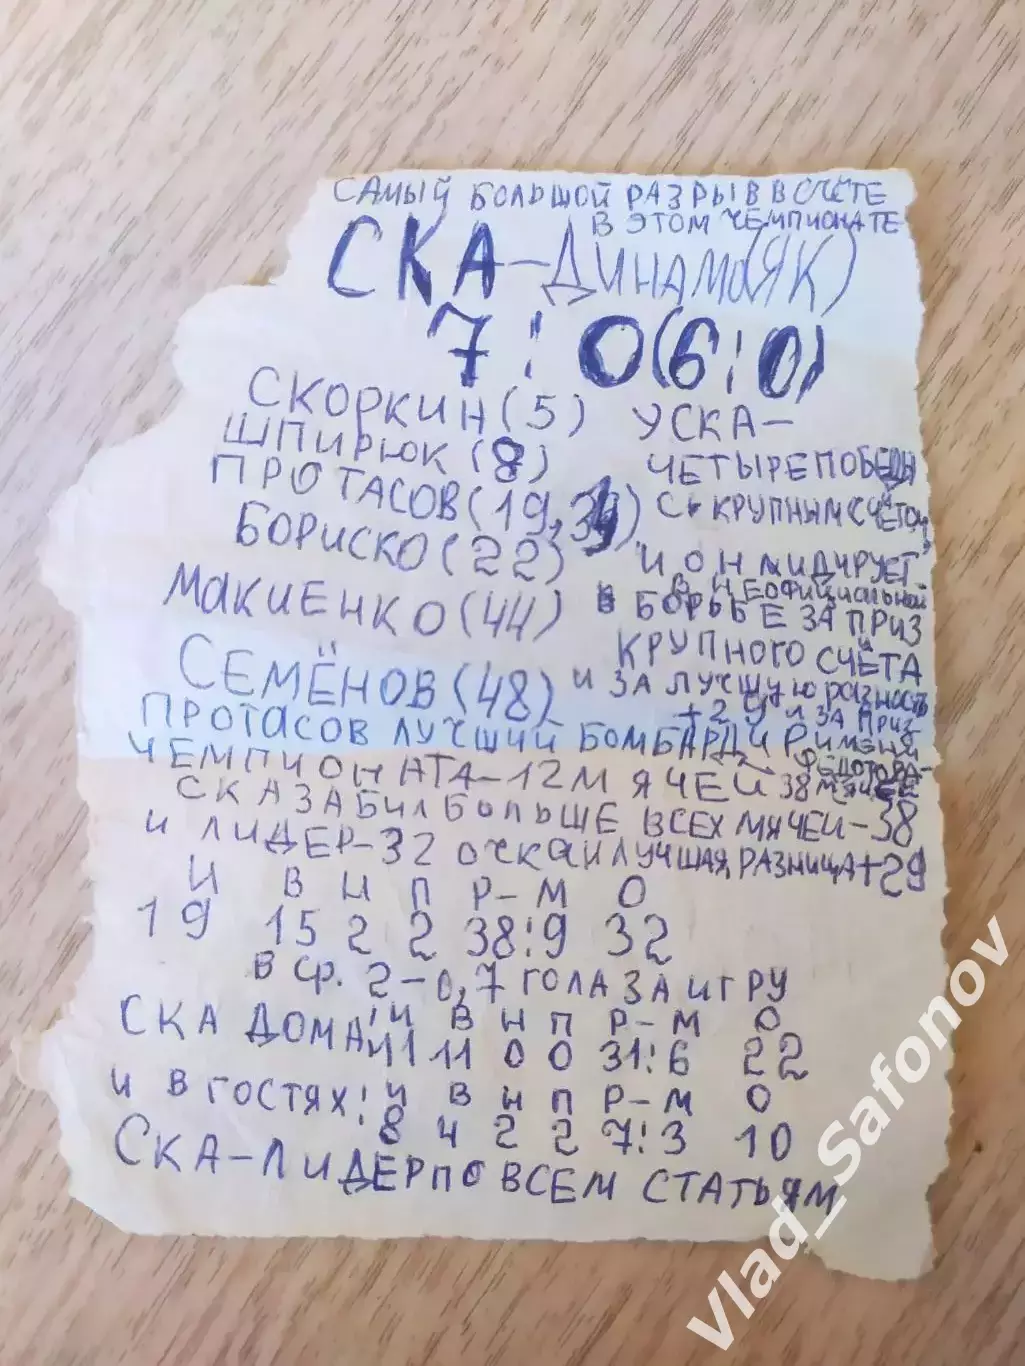 САМЫЙ БОЛЬШОЙ РАЗРЫВ В СЧЁТЕ
В ЭТОМ ЧЕМПИОНАТЕ
СКА-ДИНАМО(ЯК)
7:0(6:0)
СКОРКИН(5)
ШПИРЮК(8)
ПРОТАСОВ(19,34)
БОРИСКО(22)
МАКИЕНКО(44)
СЕМЁНОВ(48)
У СКА-
ЧЕТЫРЕ ПОБЕДЫ
С КРУПНЫМ СЧЁТОМ
И ОН ЛИДИРУЕТ
В НЕОФИЦИАЛЬНОЙ
БОРЬБЕ ЗА ПРИЗ
КРУПНОГО СЧЁТА
И ЗА ЛУЧШУЮ РАЗНОСТЬ
+29 И ЗА ПРИЗ
ИМЕНИ
ФЕДОТОВА-
38 МЯЧЕЙ
ПРОТАСОВ ЛУЧШИЙ БОМБАРДИР
ЧЕМПИОНАТА-12 МЯЧЕЙ
СКА ЗАБИЛ БОЛЬШЕ ВСЕХ МЯЧЕЙ-38
И ЛИДЕР-32 ОЧКА И ЛУЧШАЯ РАЗНИЦА+29
И В Н П Р-М О
19 15 2 2 38:9 32
В СР. 2-0,7 ГОЛА ЗА ИГРУ
СКА ДОМА: И В Н П Р-М О
11 11 0 0 31:6 22
И В ГОСТЯХ: И В Н П Р-М О
8 4 2 2 7:3 10
СКА-ЛИДЕР ПО ВСЕМ СТАТЬЯМ
Vlad_Safonov